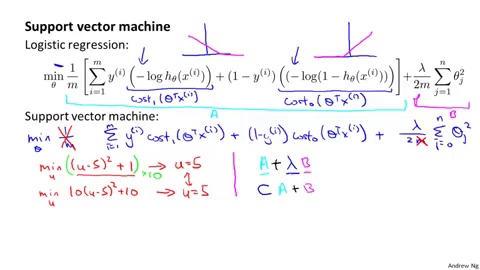 Support vector machine
Logistic regression:
min_θ 1/m [ ∑_{i=1}^{m} y^{(i)} (−log h_θ(x^{(i)})) + (1 − y^{(i)}) ((−log(1 − h_θ(x^{(i)}))) ] + λ/2m ∑_{j=1}^{n} θ_j^2
cost_1(θ^T x^{(i)}) cost_0(θ^T x^{(i)})
A B
Support vector machine:
min_θ 1/m ∑_{i=1}^{m} y^{(i)} cost_1(θ^T x^{(i)}) + (1−y^{(i)}) cost_0(θ^T x^{(i)}) + λ/2m ∑_{i=0}^{n} θ_j^2
min_u (u−5)^2 + 1 → u=5 A + λ B
×10
min_u 10(u−5)^2 + 10 → u=5 C A + B
Andrew Ng